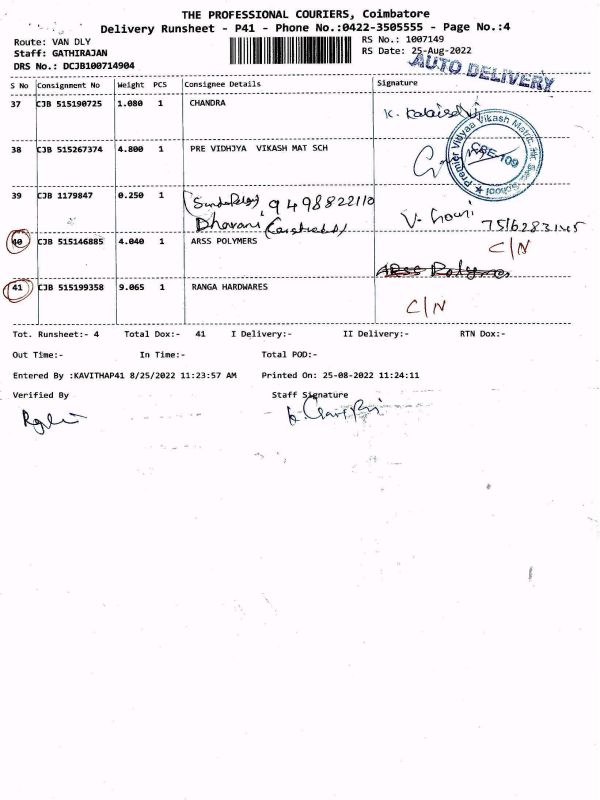 THE PROFESSIONAL COURIERS, Coimbatore
Delivery Runsheet - P41 - Phone No.:0422-3505555 - Page No.:4
Route: VAN DLY
Staff: GATHIRAJAN
DRS No.: DCJB100714904
RS No.: 1007149
RS Date: 25-Aug-2022
AUTO DELIVERY
S No Consignment No Weight PCS Consignee Details Signature
37 CJB 515190725 1.080 1 CHANDRA
38 CJB 515267374 4.800 1 PRE VIDHJYA VIKASH MAT SCH
Premier Vidyaa Vikash Matric. Hr. Sec. School
CBE-109
39 CJB 1179847 0.250 1 9498822110
Dharani V. Gowri 7516283145
40 CJB 515146885 4.040 1 ARSS POLYMERS C/N
ARSS Polymers
41 CJB 515199358 9.065 1 RANGA HARDWARES
C/N
Tot. Runsheet:- 4 Total Dox:- 41 I Delivery:- II Delivery:- RTN Dox:-
Out Time:- In Time:- Total POD:-
Entered By :KAVITHAP41 8/25/2022 11:23:57 AM Printed On: 25-08-2022 11:24:11
Verified By Staff Signature